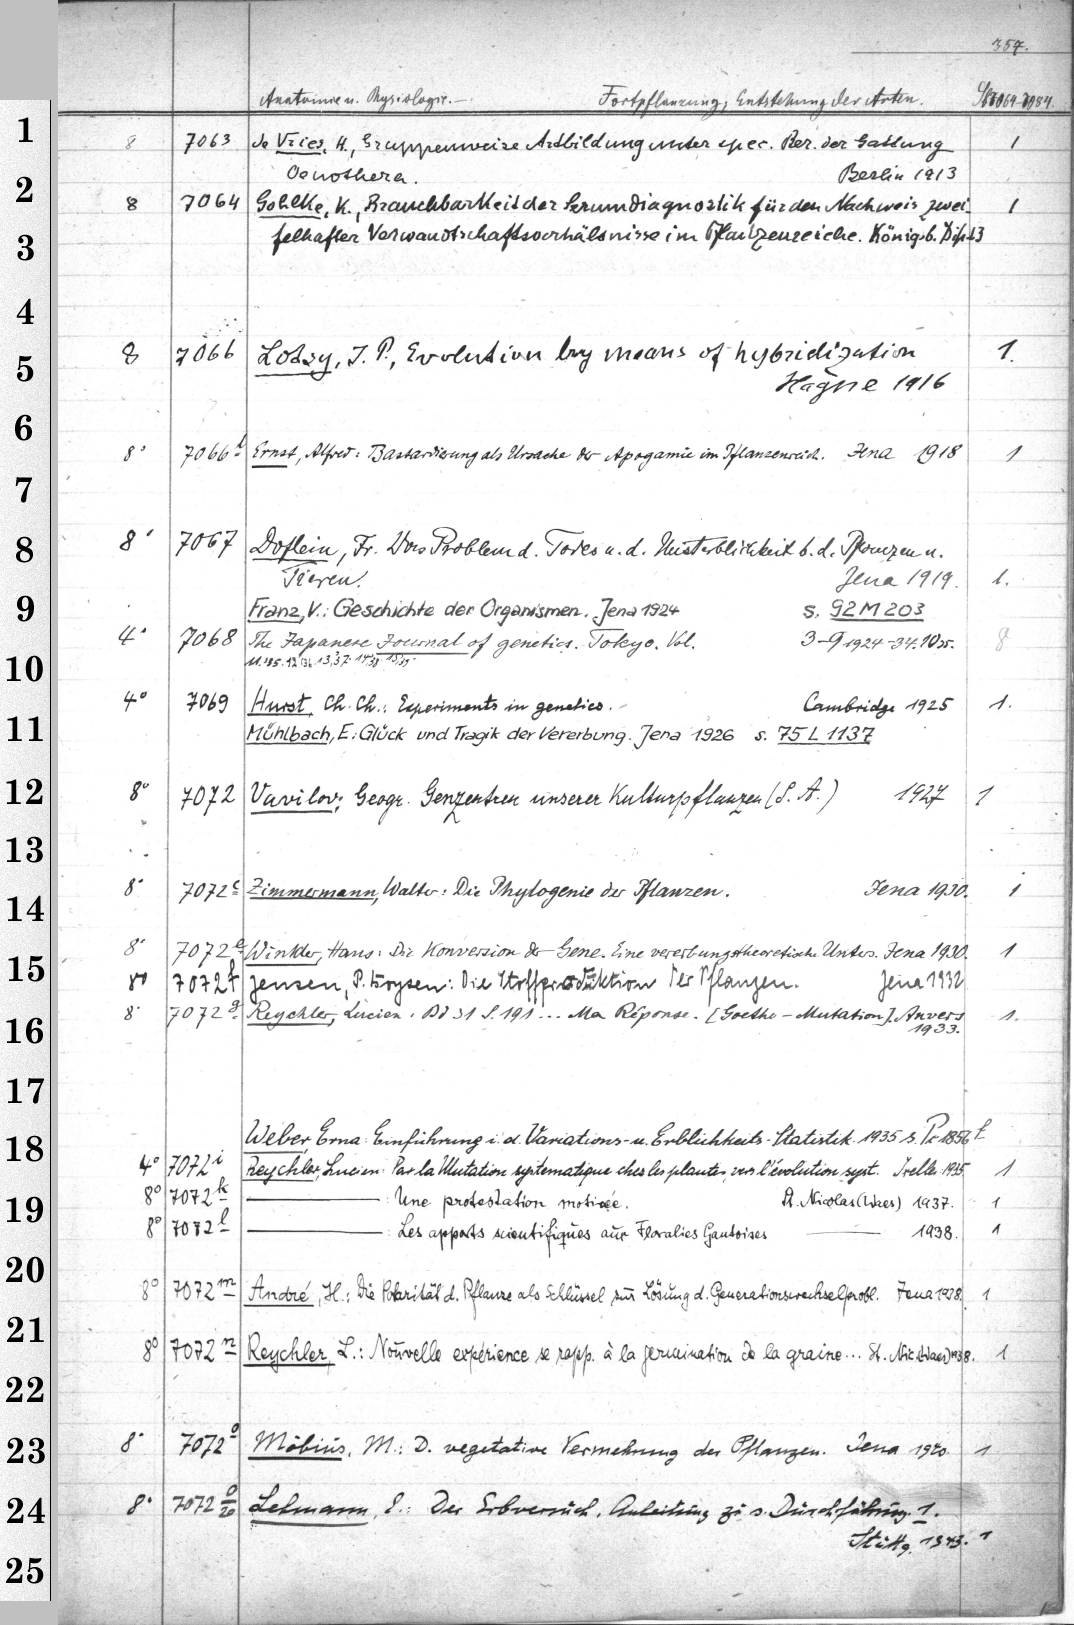 357.
Anatomie u. Physiologie.— Fortpflanzung, Entstehung der Arten. St 7064-7084.
1 8 7063 de Vries, H., Gruppenweise Artbildung unter spec. Ber. der Gattung 1
2 Oenothera. Berlin 1913
8 7064 Gohlke, K., Brauchbarkeit der Serumdiagnostik für den Nachweis zwei- 1
3 felhafter Verwandtschaftsverhältnisse im Pflanzenreiche. Königsb. Diss. 13
4
5 8 7066 Lotsy, J. P., Evolution by means of hybridization 1.
Hagne 1916
6
8° 7066b Ernst, Alfred: Bastardierung als Ursache der Apogamie im Pflanzenreich. Jena 1918 1
7
8 8° 7067 Doflein, Fr. Das Problem d. Todes u. d. Unsterblichkeit b. d. Pflanzen u.
Tieren. Jena 1919. 1.
9 Franz, V.: Geschichte der Organismen. Jena 1924 s. 92 M 203
4° 7068 The Japanese Journal of genetics. Tokyo. Vol. 3-9 1924-34. 10 35. 8
10 11.'35. 12 36. 13,37. 14,38 15,39
4° 7069 Hurst, Ch. Ch.: Experiments in genetics. Cambridge 1925 1.
11 Mühlbach, E.: Glück und Tragik der Vererbung. Jena 1926 s. 75 L 1137
12 8° 7072 Vavilov; Geogr. Genzentren unserer Kulturpflanzen (S. A.) 1927 1
13
14 8° 7072c Zimmermann, Walter: Die Phylogenie der Pflanzen. Jena 1930. 1
8° 7072e Winkler, Hans: Die Konversion der Gene. Eine vererbungstheoretische Unters. Jena 1930. 1
15 8° 7072f Jensen, P. Boysen: Die Stoffproduktion der Pflanzen. Jena 1932
16 8° 7072g Reychler, Lucien. Bd 31 S. 191 ... Ma Réponse. [Goethe - Mutation]. Anvers 1.
1933.
17
18 Weber, Erna: Einführung i. d. Variations- u. Erblichkeits-Statistik. 1935 s. Pr 1856 f
4° 7072i Reychler, Lucien: Par la Mutation systematique ches les plantes, vers l'évolution syst. Ixelles 1935 1
8° 7072k ——— : Une protestation motivée. St. Nicolas (Waes) 1937. 1
19
8° 7072l ——— : Les apports scientifiques aux Floralies Gantoises ——— 1938. 1
20
8° 7072m André, H.: Die Polarität d. Pflanze als Schlüssel zur Lösung d. Generationswechselprobl. Jena 1938. 1
21
8° 7072n Reychler, L.: Nouvelle expérience se rapp. à la germination de la graine... St. Nic (Waes) 1938. 1
22
23 8° 7072o Möbius, M.: D. vegetative Vermehrung der Pflanzen. Jena 1940 1
24 8° 7072 o/20 Lehmann, E.: Der Erbversuch. Anleitung zu s. Durchführung. 1.
Stuttg. 1943. 1
25